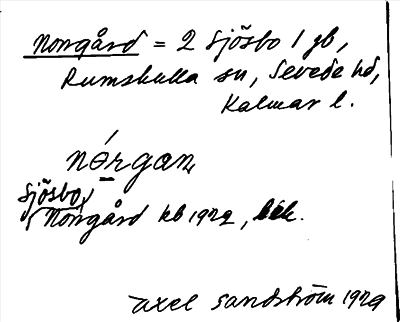 Norrgård = 2 Sjösbo 1 gb,
Rumskulla sn, Sevede hd,
Kalmar l.
nórgan,
Sjösbo,
(Norrgård kb 1929, bik.
Axel Sandström 1929